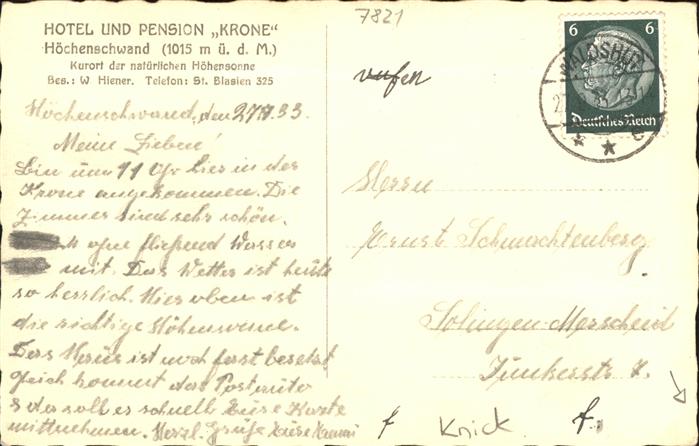 7821
HOTEL UND PENSION „KRONE“
Höchenschwand (1015 m ü. d. M.)
Kurort der natürlichen Höhensonne
Bes.: W. Hiener. Telefon: St. Blasien 325
6 6
Deutsches Reich
WALDSHUT
Höchenschwand, den 27.7.33.
Meine Lieben!
Bin um 11 Uhr hier in der
Krone angekommen. Die
Zimmer sind sehr schön.
ohne fließend Wasser
mit. Das Wetter ist heute
so herrlich. Hier oben ist
die richtige Höhensonne.
Das Haus ist noch fast besetzt
gleich kommt das Postauto
& da soll es schnell diese Karte
mitnehmen. Herzl. Grüße
Herrn
Ernst Schmachtenberg
Solingen-Merscheid
Junkerstr 7.
Knick